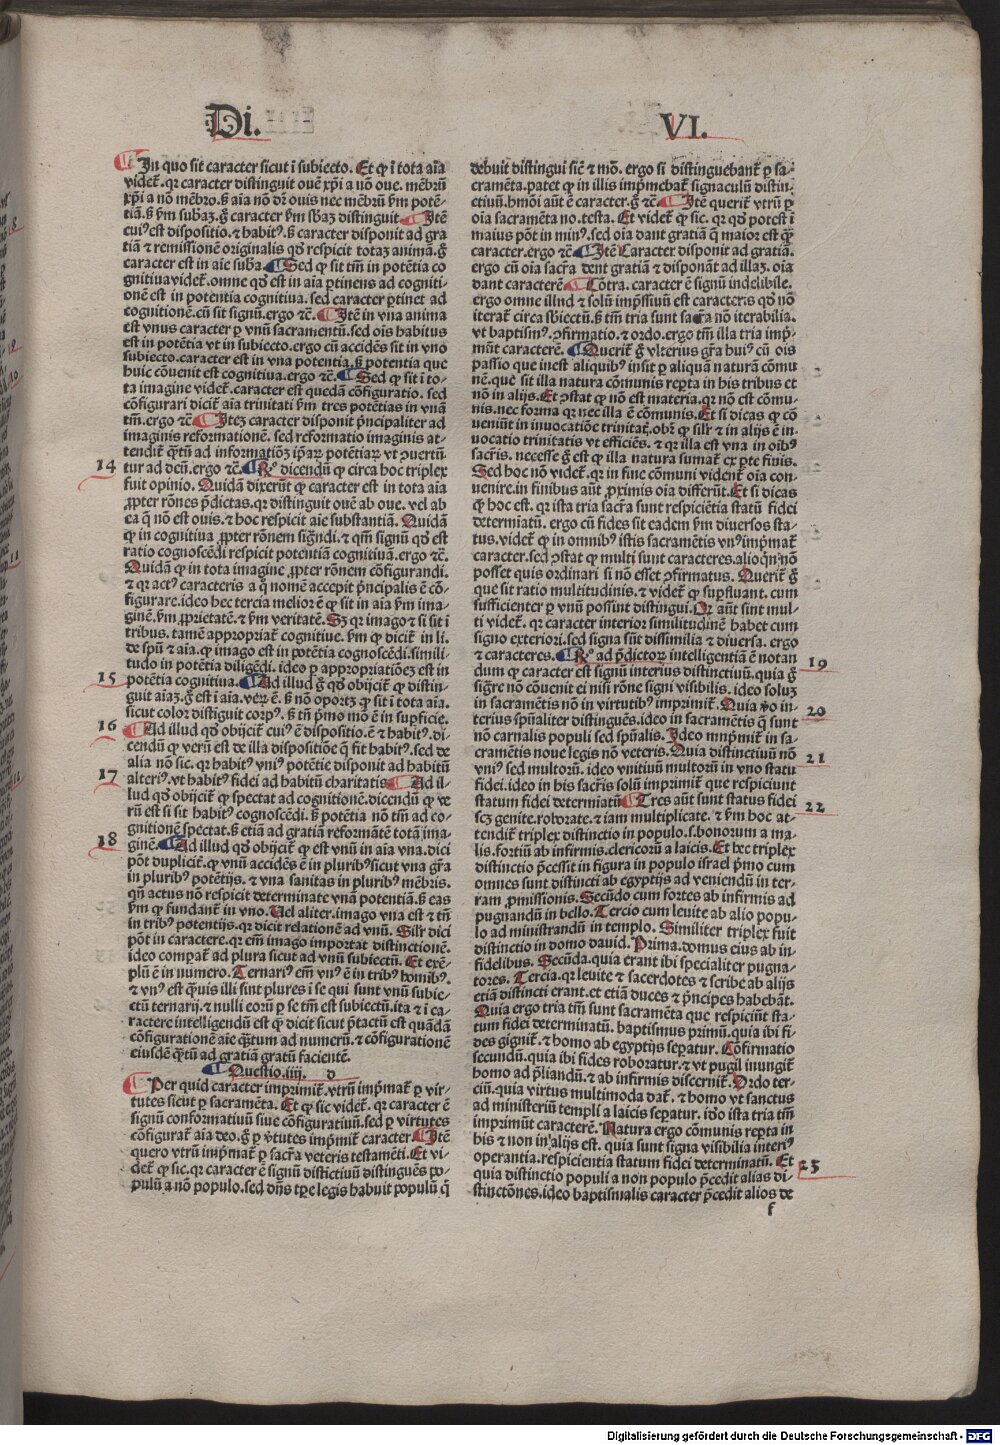 Di.
VI.
In quo sit caracter sicut i subiecto. Et ꝙ i tota aīa
videt᷑. qꝛ caracter distinguit ouē xp̄i a nō oue. mēbꝛū
xp̄i a nō mēbro. ſ aīa nō dꝛ ouis nec mēbꝛū ẜm potē-
tiā. ſ ẜm subaꝫ. gͦ caracter ẜm sbaꝫ distinguit ¶ Itē
cuiꝰ est dispositio. ⁊ habitꝰ. ſ caracter disponit ad gra
tiā ⁊ remissionē originalis qd̓ respicit totaꝫ animā. gͦ
caracter est in aīe suba. ¶ Sed ꝙ sit tm̄ in potētia co
gnitiua videt᷑. omne qd̓ est in aīa ꝑtinens ad cogniti-
onē est in potentia cognitiua. sed caracter ꝑtinet ad
cognitionē. cū sit signū. ergo ⁊c̄. ¶ Itē in vna anima
est vnus caracter ꝑ vnū sacramentū. sed ois habitus
est in potētia vt in subiecto. ergo cū accidēs sit in vno
subiecto. caracter est in vna potentia. ſ potentia que
huic cōuenit est cognitiua. ergo ⁊c̄. ¶ Sed ꝙ sit i to-
ta imagine videt᷑. caracter est quedā cōfiguratio. sed
cōfigurari dicit᷑ aīa trinitati ẜm tres potētias in vnā
tm̄. ergo ⁊c̄ ¶ Iteꝫ caracter disponit pͥncipaliter ad
imaginis reformationē. sed reformatio imaginis at-
tendit᷑ qͣtū ad informatioēꝫ ip̄aꝝ potētiaꝝ vt ꝯuertū
tur ad deū. ergo ⁊c̄. ¶ Rͦ dicendū ꝙ circa hoc triplex
fuit opinio. Quidā dixerūt ꝙ caracter est in tota aīa
ꝓpter rōnes p̄dictas. qꝛ distinguit ouē ab oue. vel ab
ea q̄ nō est ouis. ⁊ hoc respicit aīe substantiā. Quidā
ꝙ in cognitiua ꝓpter rōnem sigͦndi. ⁊ qm̄ signū qd̓ est
ratio cognoscēdi respicit potentiā cognitiuā. ergo ⁊c̄.
Quidā ꝙ in tota imagine ꝓpter rōnem cōfigurandi.
⁊ qꝛ actꝰ caracteris a q̊ nomē accepit pͥncipalis ē cō-
figurare. ideo hec tercia melior ē ꝙ sit in aīa ẜm ima-
ginē. ẜm ꝓprietatē. ⁊ ẜm veritatē. Sꝫ qꝛ imago ⁊ si sit i
tribus. tamē appropriat᷑ cognitiue. ẜm ꝙ dicit᷑ in li.
de spū ⁊ aīa. ꝙ imago est in potētia cognoscēdi. simili-
tudo in potētia diligēdi. ideo ꝑ appropriatioēꝫ est in
potētia cognitiua. ¶ Ad illud gͦ qd̓ obijcit᷑ ꝙ distin-
guit aīaꝫ. gͦ est i aīa. veꝝ ē. ſ nō oportꝫ ꝙ sit i tota aīa.
sicut color distīguit corpꝰ. ſ tn̄ pͥmo mō ē in suꝑficie.
¶ Ad illud qd̓ obijcit᷑ cuiꝰ ē dispositio. ē ⁊ habitꝰ. di-
cendū ꝙ verū est de illa dispositiōe q̄ fit habitꝰ. sed de
alia nō sic. qꝛ habitꝰ vniꝰ potētie disponit ad habitū
alteriꝰ. vt habitꝰ fidei ad habitū charitatis ¶ Ad il-
lud qd̓ obijcit᷑ ꝙ spectat ad cognitionē. dicendū ꝙ ve
rū est si sit habitꝰ cognoscēdi. ſ potētia nō tm̄ ad co-
gnitionē spectat. ſ etiā ad gratiā reformātē totā ima
ginē. ¶ Ad illud qd̓ obijcit᷑ ꝙ est vnū in aīa vna. dici
pōt dupliciꝉ. ꝙ vnū accidēs ē in pluribꝰ sicut vna gr̄a
in pluribꝰ potētijs. ⁊ vna sanitas in pluribꝰ mēbris.
qn̄ actus nō respicit determinate vnā potentiā. ſ eas
ẜm ꝙ fundant᷑ in vno. Uel aliter. imago vna est ⁊ tn̄
in tribꝰ potentijs. qꝛ dicit relationē ad vnū. Silꝛ dici
pōt in caractere. qꝛ em̄ imago importat distinctionē.
ideo comꝑat᷑ ad plura sicut ad vnū subiectū. Et exē-
plū ē in numero. Ternariꝰ em̄ vnꝰ ē in tribꝰ hoībꝰ.
⁊ vnꝰ est q̄uis illi sint plures i se qui sunt vnū subie-
ctū ternarij. ⁊ nulli eorū ꝑ se tm̄ est subiectū. ita ⁊ i ca-
ractere intelligendū est ꝙ dicit᷑ sicut ꝑtactū est quādā
cōfigurationē aīe q̄tum ad numerū. ⁊ cōfigurationē
eiusdē q̄tū ad gratiā gratū facientē.
¶ Questio .iiij. d
¶ Per quid caracter imprimit᷑. vtrū impͥmat᷑ ꝑ vir-
tutes sicut ꝑ sacramēta. Et ꝙ sic videt᷑. qꝛ caracter ē
signū conformatiuū siue cōfiguratiuū. sed ꝑ virtutes
cōfigurat᷑ aīa deo. gͦ ꝑ v̓tutes impͥmit᷑ caracter ¶ Itē
quero vtrū impͥmat᷑ ꝑ sacr̄a veteris testamēti. Et vi-
det᷑ ꝙ sic. qꝛ caracter ē signū distīctiuū distinguēs po-
pulū a nō populo. sed dn̄s tꝑe legis habuit populū q̄
14
15
16
17
18
debuit distingui siẽ ⁊ mō. ergo si distinguebant᷑ ꝑ sa-
cramēta. patet ꝙ in illis impͥmebat᷑ signaculū distin-
ctiuū. hmōi aūt ē caracter. gͦ ⁊c̄ ¶ Itē querit᷑ vtrū ꝑ
oīa sacramēta no. testa. Et videt᷑ ꝙ sic. qꝛ qd̓ potest i
maius pōt in minꝰ. sed oīa dant gratiā q̄ maior est q̄ꝫ
caracter. ergo ⁊c̄ ¶ Itē Caracter disponit ad gratiā.
ergo cū oīa sacr̄a dent gratiā ⁊ disponāt ad illaꝫ. oīa
dant caracterē ¶ Cōtra. caracter ē signū indelibile.
ergo omne illud ⁊ solū imp̄ssiuū est caracteris qd̓ nō
iterat᷑ circa sbiectū. ſ tm̄ tria sunt sacr̄a nō iterabilia.
vt baptismꝰ. ꝯfirmatio. ⁊ ordo. ergo tm̄ illa tria impͥ-
mūt caracterē. ¶ Querit᷑ gͦ vlterius gr̄a huiꝰ cū ois
passio que inest aliquibꝰ insit ꝑ aliquā naturā cōmu
nē. que sit illa natura cōmunis reꝑta in his tribus et
nō in alijs. Et ꝯstat ꝙ nō est materia. qꝛ nō est cōmu-
nis. nec forma qꝛ nec illa ē cōmunis. Et si dicas ꝙ cō
veniūt in inuocatiōe trinitaṫ. obꝛ ꝙ silꝛ ⁊ in alijs ē in-
uocatio trinitatis vt efficiēs. ⁊ qꝛ illa est vna in oibꝰ
sacr̄is. necesse gͦ est ꝙ illa natura sumat᷑ ex ꝑte finis.
Sed hoc nō videt᷑. qꝛ in fine cōmuni vident᷑ oīa con-
uenire. in finibus aūt ꝓximis oīa differūt. Et si dicas
ꝙ hoc est. qꝛ ista tria sacr̄a sunt respiciētia statū fidei
determiatū. ergo cū fides sit eadem ẜm diuersos sta-
tus. videt᷑ ꝙ in omnibꝰ istis sacramētis vnꝰ impͥmat᷑
caracter. sed ꝯstat ꝙ multi sunt caracteres. alioqͥn nō
posset quis ordinari si nō esset ꝯfirmatus. Querit᷑ gͦ
que sit ratio multitudinis. ⁊ videt᷑ ꝙ suꝑfluant. cum
sufficienter ꝑ vnū possint distingui. Qꝛ aūt sint mul-
ti videt᷑. qꝛ caracter interior similitudinē habet cum
signo exteriori. sed signa sūt dissimilia ⁊ diuersa. ergo
⁊ caracteres. ¶ Rͦ ad p̄dictoꝝ intelligentiā ē notan
dum ꝙ caracter est signū interius distinctiuū. quia gͦ
sigͦre nō cōuenit ei nisi rōne signi visibilis. ideo soluꝫ
in sacramētis nō in virtutibꝰ imprimit᷑. Quia v̓o in-
terius spūaliter distinguēs. ideo in sacramētis q̄ sunt
nō carnalis populi sed spūalis. Ideo īnpͥmit᷑ in sa-
cramētis noue legis nō veteris. Quia distinctiuū nō
vniꝰ sed multorū. ideo vnitiuū multorū in vno statu
fidei. ideo in his sacr̄is solū imprimit᷑ que respiciunt
statum fidei determiatū ¶ Tres aūt sunt status fidei
scꝫ genite. roborate. ⁊ iam multiplicate. ⁊ ẜm hoc at-
tendit᷑ triplex distinctio in populo. s. bonorum a ma-
lis. fortiū ab infirmis. clericorū a laicis. Et hec triplex
distinctio p̄cessit in figura in populo israel pͥmo cum
omnes sunt distincti ab egyptijs ad veniendū in ter-
ram ꝓmissionis. Secūdo cum fortes ab infirmis ad
pugnandū in bello. Tercio cum leuite ab alio popu-
lo ad ministrandū in templo. Similiter triplex fuit
distinctio in domo dauid. Prima. domus eius ab in-
fidelibus. Secūda. quia erant ibi specialiter pugna-
tores. Tercia. qꝛ leuite ⁊ sacerdotes ⁊ scribe ab alijs
etiā distincti erant. et etiā duces ⁊ pͥncipes habebāt.
Quia ergo tria tm̄ sunt sacramēta que respiciūt sta-
tum fidei determinatū. baptismus primū. quia ibi fi-
des gignit᷑. ⁊ homo ab egyptijs seꝑatur. Cōfirmatio
secundū. quia ibi fides roboratur. ⁊ vt pugil inungit᷑
homo ad p̄liandū. ⁊ ab infirmis discernit᷑. Ordo ter-
ciū. quia virtus multimoda dat᷑. ⁊ homo vt sanctus
ad ministeriū templi a laicis seꝑatur. iđo ista tria tm̄
imprimūt caracterē. Natura ergo cōmunis reꝑta in
his ⁊ non in alijs est. quia sunt signa visibilia interiꝰ
operantia. respicientia statum fidei determinatū. Et
quia distinctio populi a non populo p̄cedit alias di-
stinctōnes. ideo baptismalis caracter p̄cedit alios de
19
20
21
22
23
f
Digitalisierung gefördert durch die Deutsche Forschungsgemeinschaft - DFG